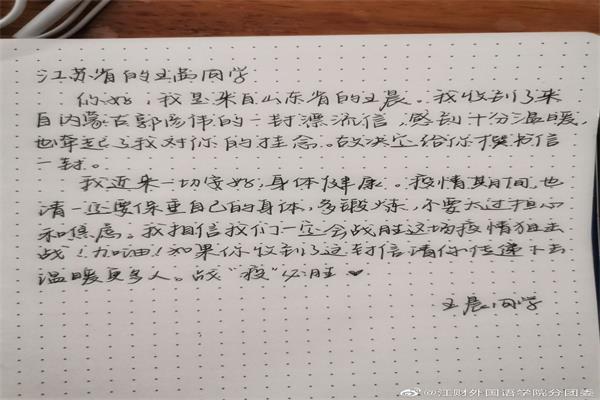 江苏省的王尚同学
你好，我是来自山东省的王晨。我收到了来
自内蒙古郭彦伟的一封漂流信，感到十分温暖，
也牵起了我对你的挂念。故决定给你撰书信
一封。
我近来一切安好，身体健康。疫情期间，也
请一定要保重自己的身体，多锻炼，不要太过担心
和焦虑。我相信我们一定会战胜这场疫情狙击
战！加油！如果你收到了这封信请你传递下去
温暖更多人。战“疫”必胜❤
王晨同学
@江财外国语学院分团委